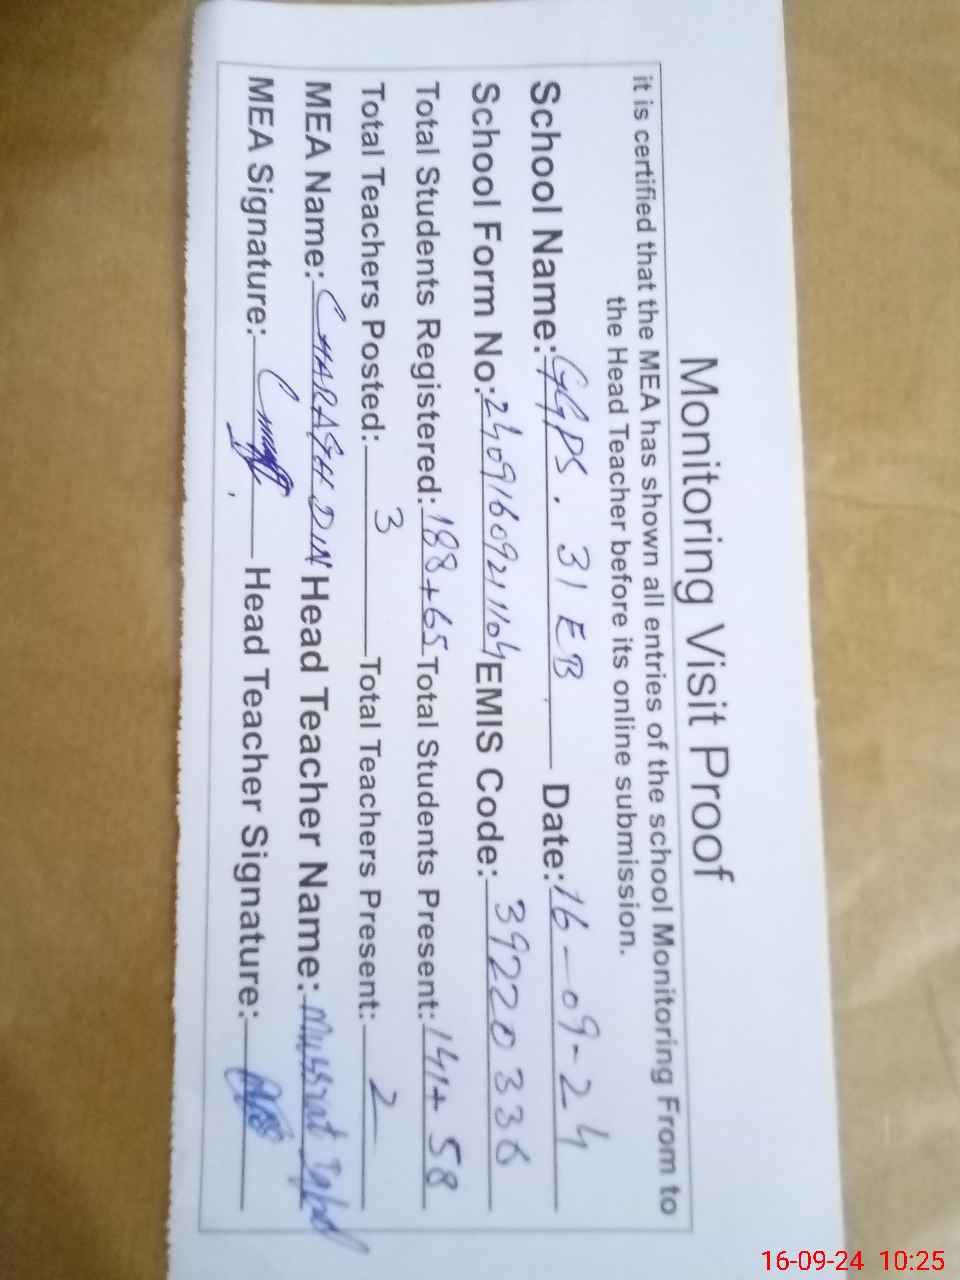 Monitoring Visit Proof
it is certified that the MEA has shown all entries of the school Monitoring From to
the Head Teacher before its online submission.
School Name: GGPS. 31 EB Date: 16-09-24
School Form No: 24091609211104 EMIS Code: 39220336
Total Students Registered: 188+65 Total Students Present: 141+58
Total Teachers Posted: 3 Total Teachers Present: 2
MEA Name: CHARAGH DIN Head Teacher Name: Mussrat Iqbal
MEA Signature: Head Teacher Signature:
16-09-24 10:25